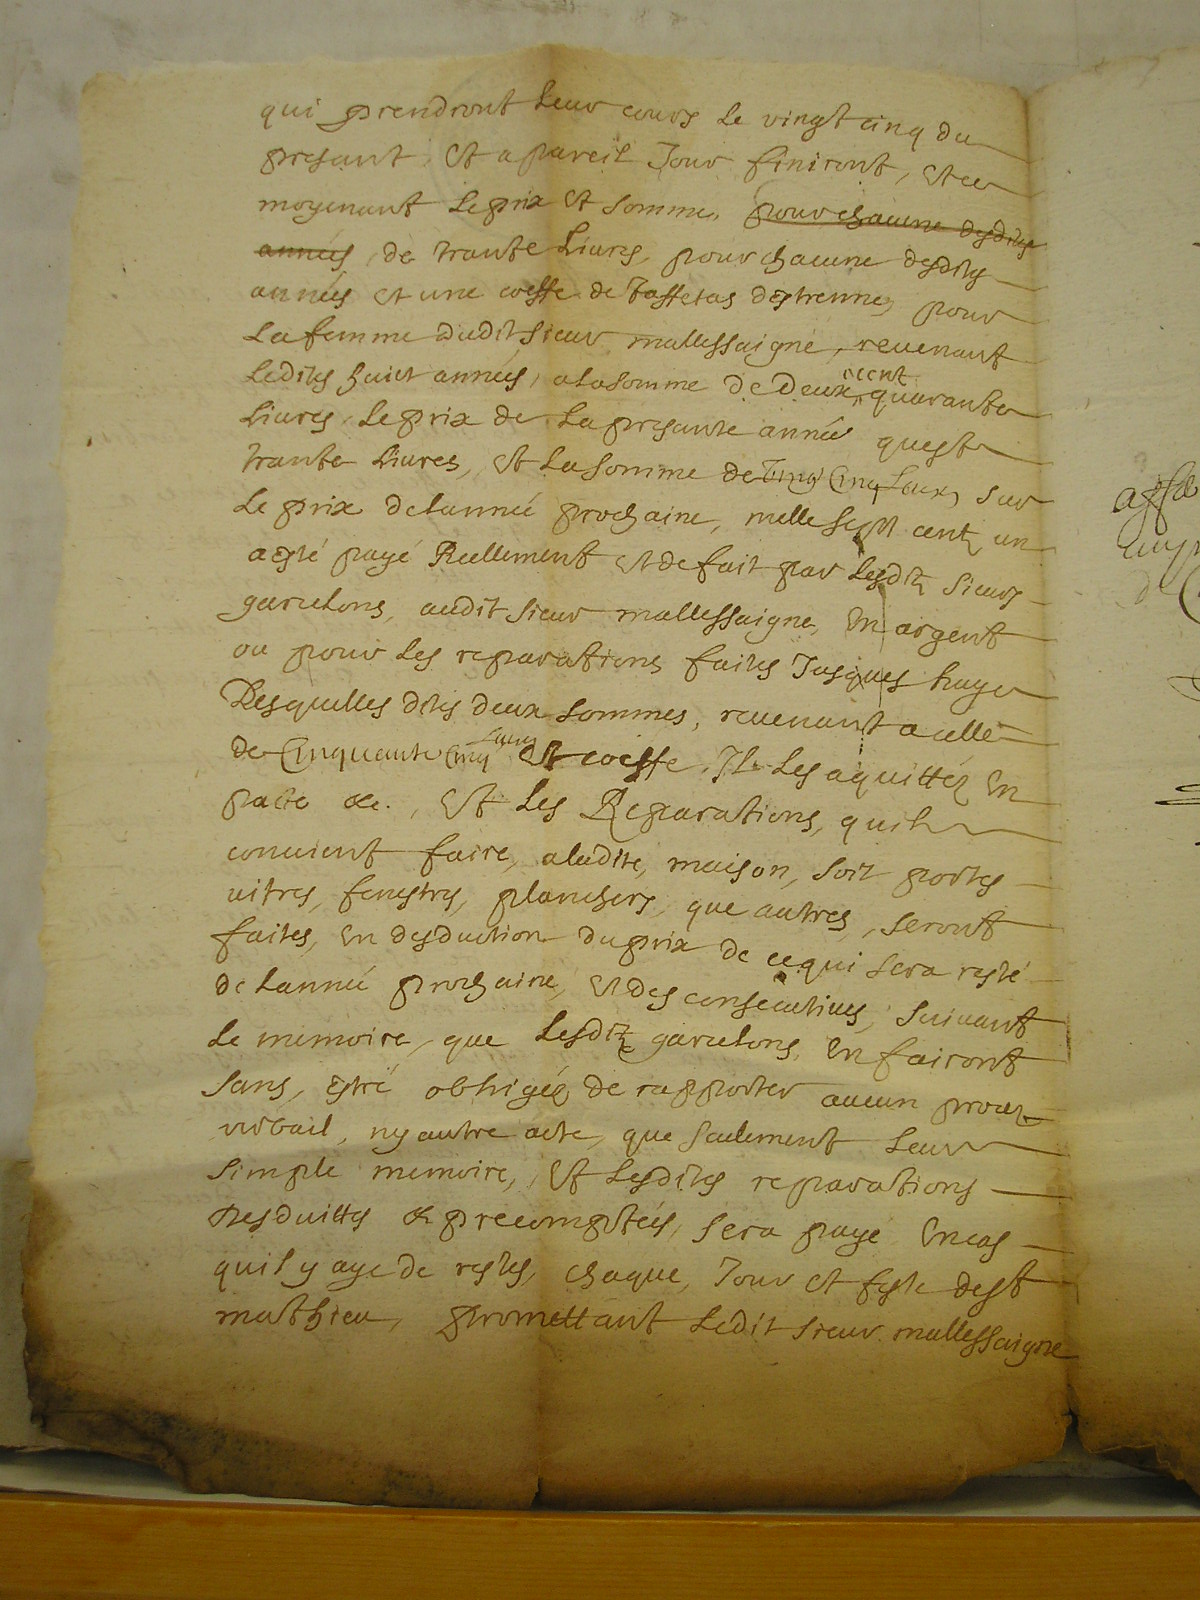 qui prendront leur cours le vingt cinq du
presant, et a pareil Jour finiront, et ce
moyenant le prix et somme, pour chacune desdites
années de trante Liures, pour chacune desdites
années et une coeffe de taffetas destrennes pour
La femme dudit sieur mallessaigne, reuenant
Lesdites huict années, a la somme de deux cent quarante
Liures, Le prix de La presante année quest
trante Liures, et La somme de Cinq Liures, sur
Le prix de Lannée prochaine, mille sept centz un
a esté payé Reellement et de fait par Lesditz sieurs
garulons, audit sieur mallessaigne, En argent
ou pour Les reparations faites Jusques huy
Desquelles dites deux sommes, reuenant a celle
de Cinquante Cinq Liures et coeffe, Il Les a quittéz En
pacte &c., Et Les Reparations, quil
conuient faire, a ladite, maison, soit portes
uitres, fenestres, planchers, que autres, seront
faites, En desduction du prix de ce qui sera resté
de Lannée prochaine, et des consecutiues, suiuant
Le memoire, que Lesditz garulons, En fairont
sans, estre obligéz de rapporter aucun procez
uerbail, ny autre acte, que seulement Leur
simple memoire, Et Lesdites reparations
Desduittes & precomptées, sera payé En cas
quil y aye de restes, chaque, Jour et feste de st
mathieu, promettant Ledit sieur mallessaigne